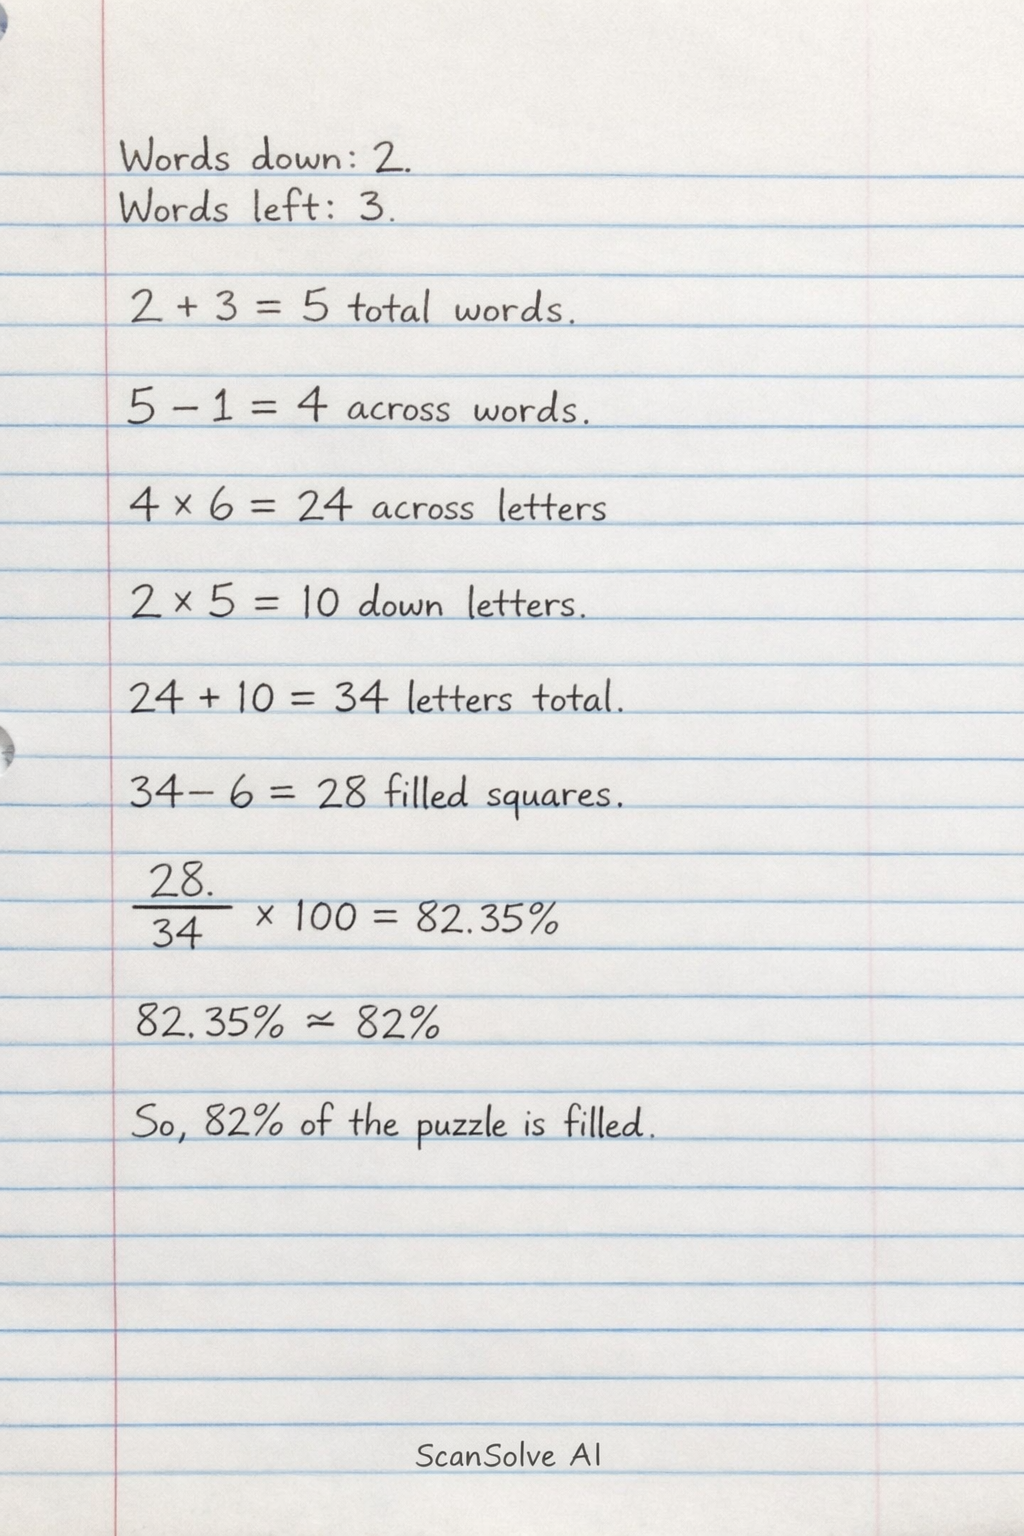 Words down: 2.
Words left: 3.
2 + 3 = 5 total words.
5 – 1 = 4 across words.
4 × 6 = 24 across letters
2 × 5 = 10 down letters.
24 + 10 = 34 letters total.
34– 6 = 28 filled squares.
28.
34
× 100 = 82.35%
82.35% ≃ 82%
So, 82% of the puzzle is filled.
ScanSolve AI